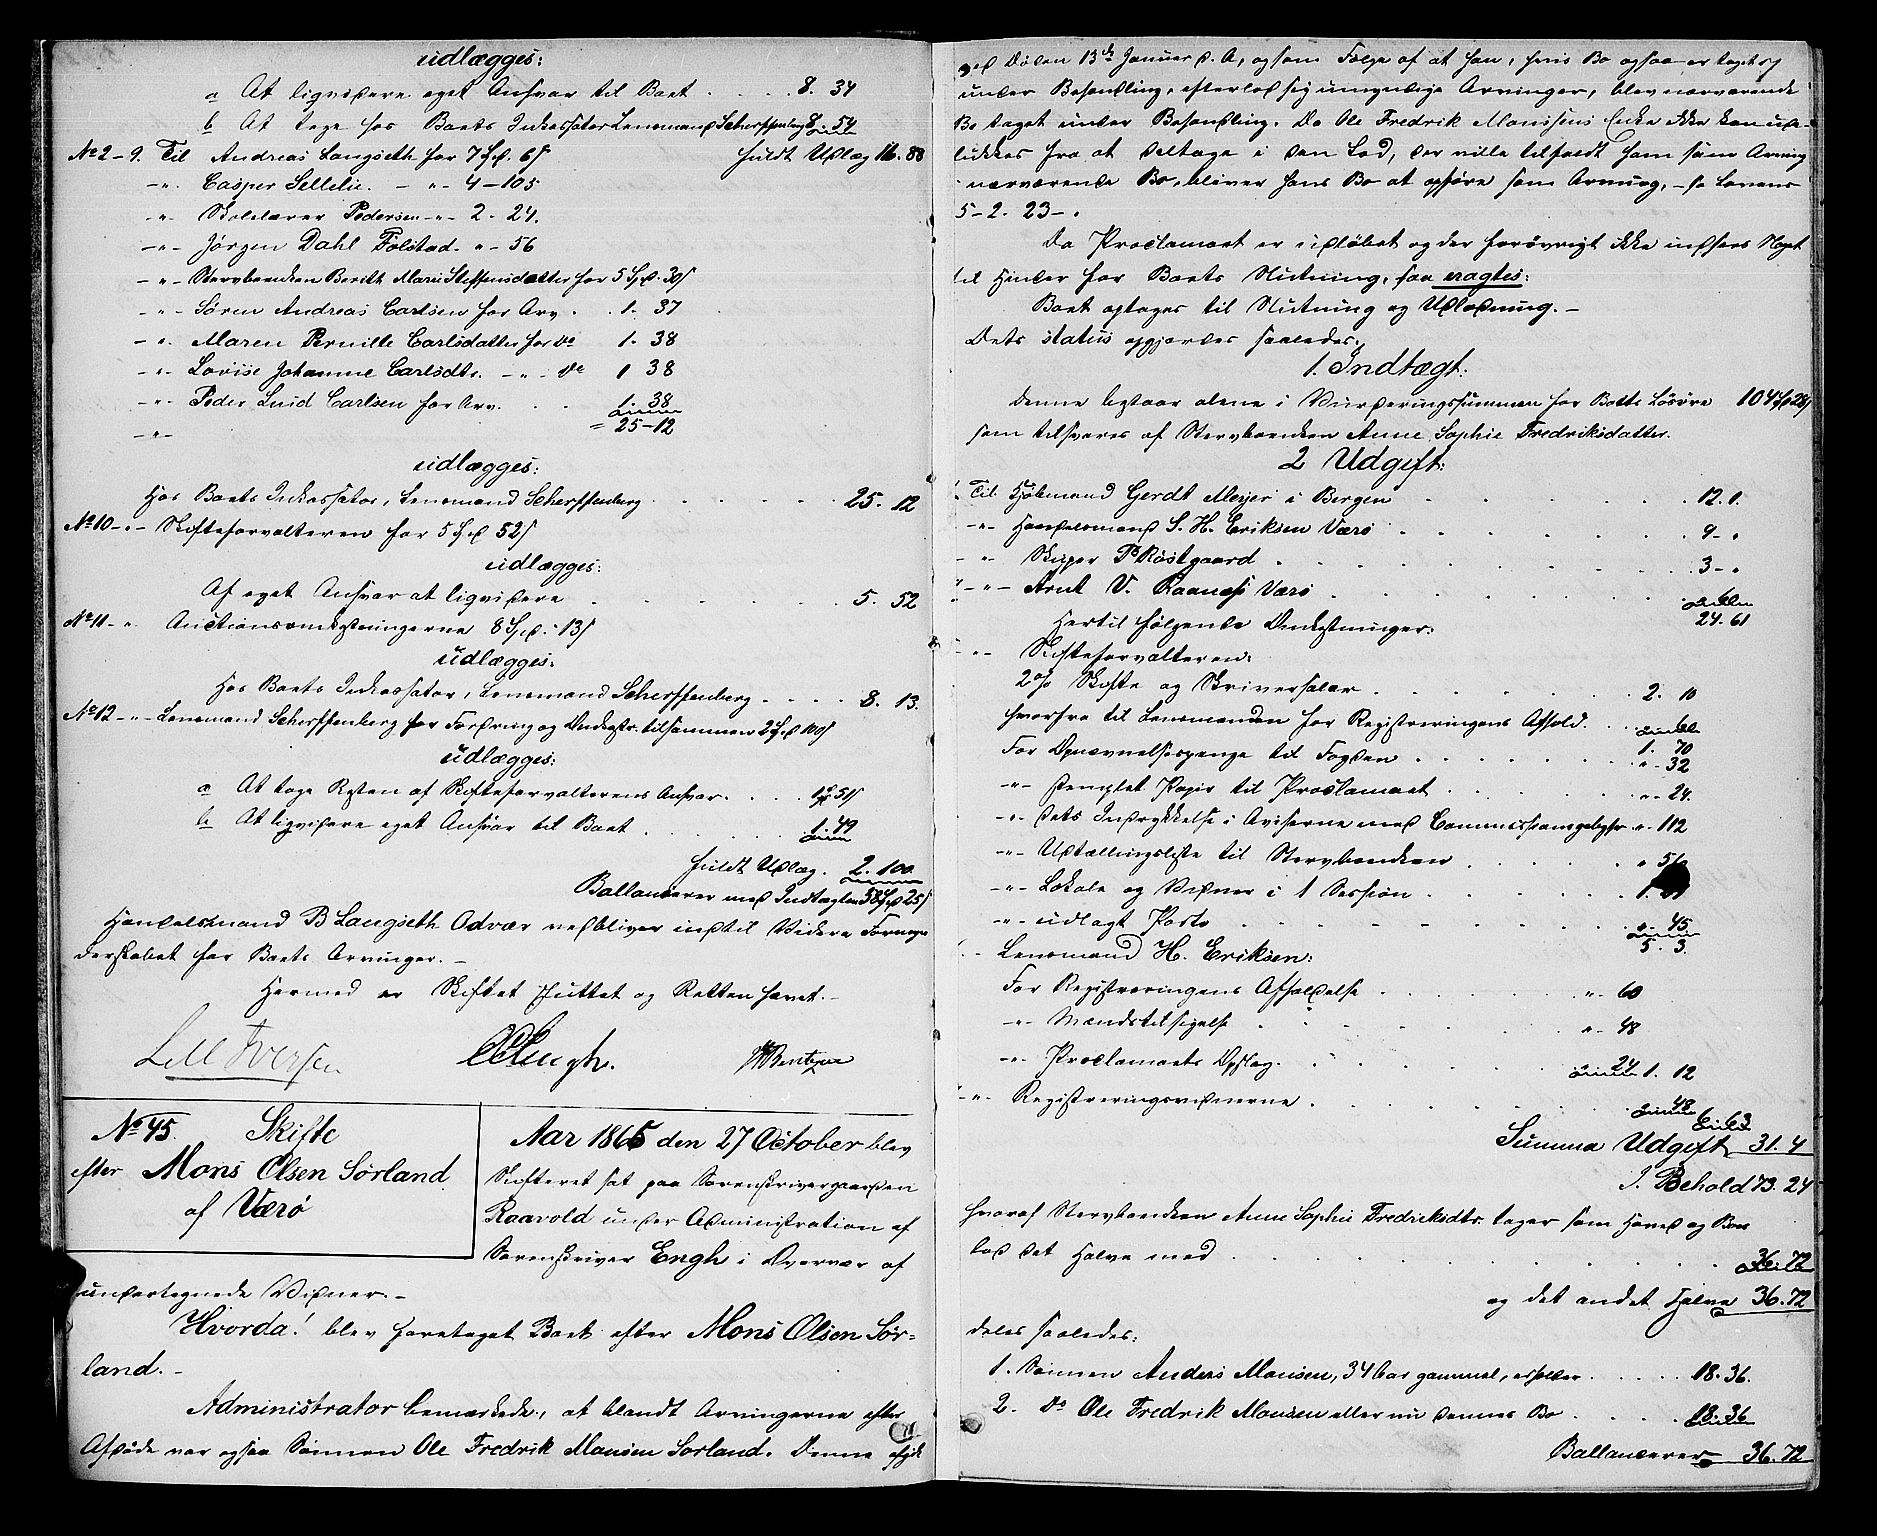 udlægges:
a At liqvidere eget Ansvar til Boet . . . . 8. 34
b At tage hos Boets Inkassator Lensmand Scherffenberg 8. 54
No 2-9. Til Andreas Langseth for 7 Spd. 6 s fuldt Udlæg 16. 88
-"- Casper Sellelie. - " - 4-105
-"- Skolelærer Pedersen -"- 2. 24.
-"- Jørgen Dahl Følstad. " - 56
-"- Stervboenken Berith Marie Steffensdatter for 5 Spd. 30 s
-"- Søren Andreas Carlsen for Arv . . 1. 37
-"- Maren Pernille Carlsdatter for do 1. 38
-"- Lovise Johanne Carlsdtr. - " - do 1 38
-"- Peder Lund Carlsen for Arv. . . 1. 38
-"- = 25-12
udlægges:
Hos Boets Inkassator, Lensmand Scherffenberg . . . . . 25. 12
No 10-"- Skifteforvalteren for 5 Spd 52 s
udlægges:
Af eget Ansvar at liqvidere . . . . . 5. 52
No 11-" Auctionsomkostningerne 8 Spd. 13 s
udlægges:
Hos Boets Inkassator, Lensmand Scherffenberg . . . . 8. 13.
No 12-"- Lensmand Scherffenberg for Fordring og Omkostn. tilsammen 2 Spd 100 s
udlægges:
a At tage Resten af Skifteforvalterens Ansvar. . . . 1 Spd 51 s
b At liqvidere eget Ansvar til Boet . . . . . 1. 49
fuldt Udlæg. 2. 100
Ballancerer med Indtægten 58 Spd 25 s
Handelsmand B Langseth Advær vedbliver indtil Videre Formyn
derskabet for Boets Arvinger. -
Hermed er Skiftet sluttet og Retten hævet. -
Engh.
No 45. Skifte
efter Mons Olsen Sørland
af Værø
Aar 1865 den 27 October blev
Skifteret sat paa Sorenskrivergaarden
Raavold under Administration af
Sorenskriver Engh i Overvær af
undertegnede Vidner. -
Hvorda! blev foretaget Boet efter Mons Olsen Sør-
land. -
Administrator bemærkede, at blandt Arvingerne efter
Afdøde var ogsaa Sønnen Ole Fredrik Monsen Sørland. Denne afgik
ved Døden 13de Januar d. A, og som Følge af at han, hvis Bo ogsaa er taget
under Behandling, efterlod sig umyndige Arvinger, blev nærværende
Bo taget under Behandling. Da Ole Fredrik Monssens Enke ikke kan ude-
lukkes fra at deltage i den Lod, der ville tilfaldt ham som Arving
i nærværende Bo, bliver hans Bo at opføre som Arving, - se Lovens
5-2. 23-.
Da Proclamaet er udløbet og der forøvrigt ikke indsees Noget
til Hinder for Boets Slutning, saa eragtes:
Boet optages til Slutning og Udlodning. -
Dets status opgjordes saaledes:
1. Indtægt:
Denne bestaar alene i Vurderingssummen for Boets Løsøre 104 Spd 28 s
som tilsvares af Stervboenken Anne Sophie Fredriksdatter.
2 Udgift:
Til Kjøbmand Gerdt Meyer i Bergen . . . . 12. 1.
-"- Handelsmand S. H. Eriksen Værø . . . . 9-"
-" Skiper P Røstgaard . . . . 3-"
-"- Arnt V. Raanes Værø . . . . 60
24. 61
Hertil følgende Omkostninger:
-"- Skifteforvalteren:
2% Skifte og Skriversalær . . . . 2. 10
hvorfra til Lensmanden for Registreringens Afhold. . . 60
1. 70
For Opnævnelsespenge til Fogden . . . . " - 32
-"- stemplet Papir til Proclamaet . . . . "- 24.
-"- dets Indrykkelse i Aviserne med Commissionsgebyhr " - 112
-"- Udtællingsliste til Stervboenken . . . .
-"- Lokale og Vidner i 1 Session . . . .
-"- udlagt Porto . . . . " 45
5. 3.
Lensmand H. Eriksen:
For Registreringens Afholdelse . . . . "- 60
-"- Mændstilsigelse . . . . " - 48
-"- Proclamaets Opslag. . . . 24 1. 12
-"- Registreringsvidnerne . . . . 48
6. 63
Summa Udgift 31. 4
I Behold 73. 24
hvoraf Stervboenken Anne Sophie Fredriksdtr. tager som Hoved og Boes
lod det Halve med . . . . 36. 72
og det andet Halve 36. 72
deles saaledes:
1. Sønnen Anders Monsen, 34 Aar gammel, erholder . . . . 18. 36.
2. Do Ole Fredrik Monsen eller nu dennes Bo . . . . 18. 36
Ballancerer 36. 72